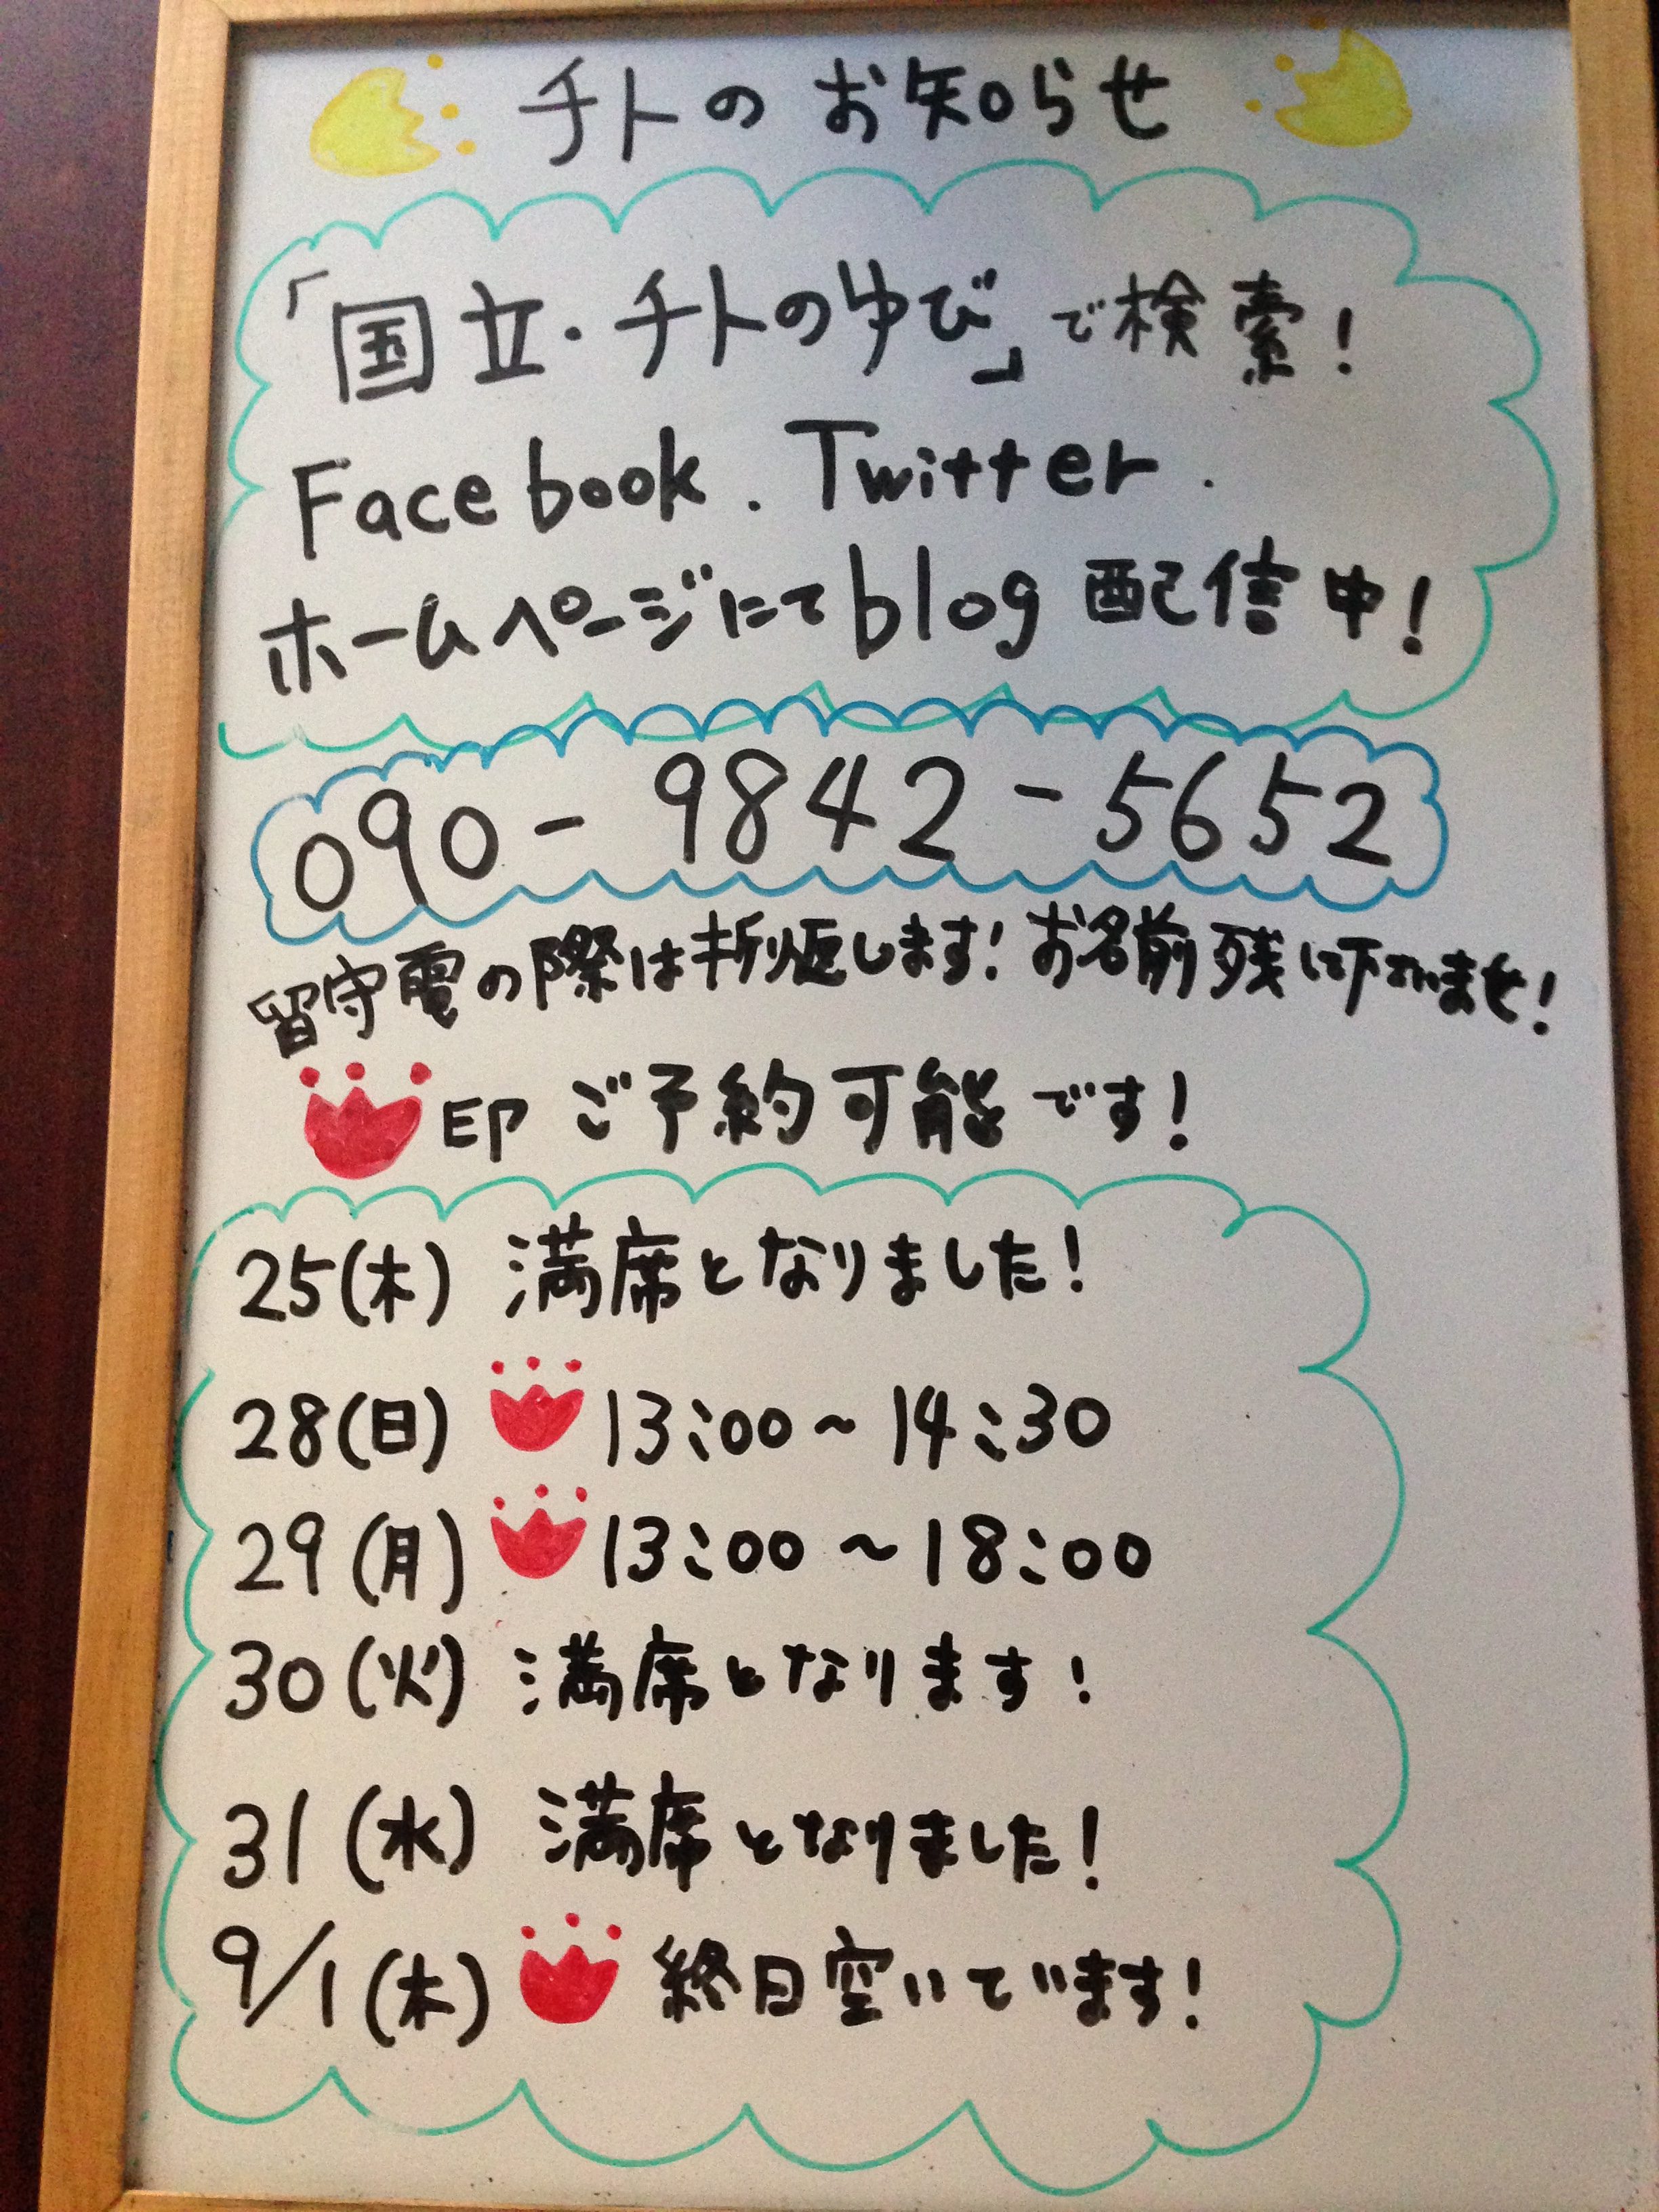 チトのお知らせ
「国立・チトのゆび」で検索!
Facebook.Twitter.
ホームページにてblog配信中!
090-9842-5652
留守電の際は折り返します!お名前残して下さいませ!
印 ご予約可能です!
25(木) 満席となりました!
28(日) 13:00~14:30
29(月) 13:00~18:00
30(火) 満席となります!
31(水) 満席となりました!
9/1(木) 終日空いています!